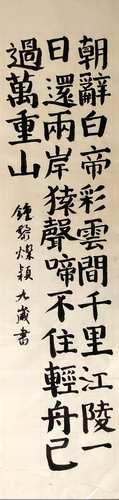 朝辭白帝彩雲間千里江陵一
日還兩岸猿聲啼不住輕舟已
過萬重山
鍾黎燦穎九歲書